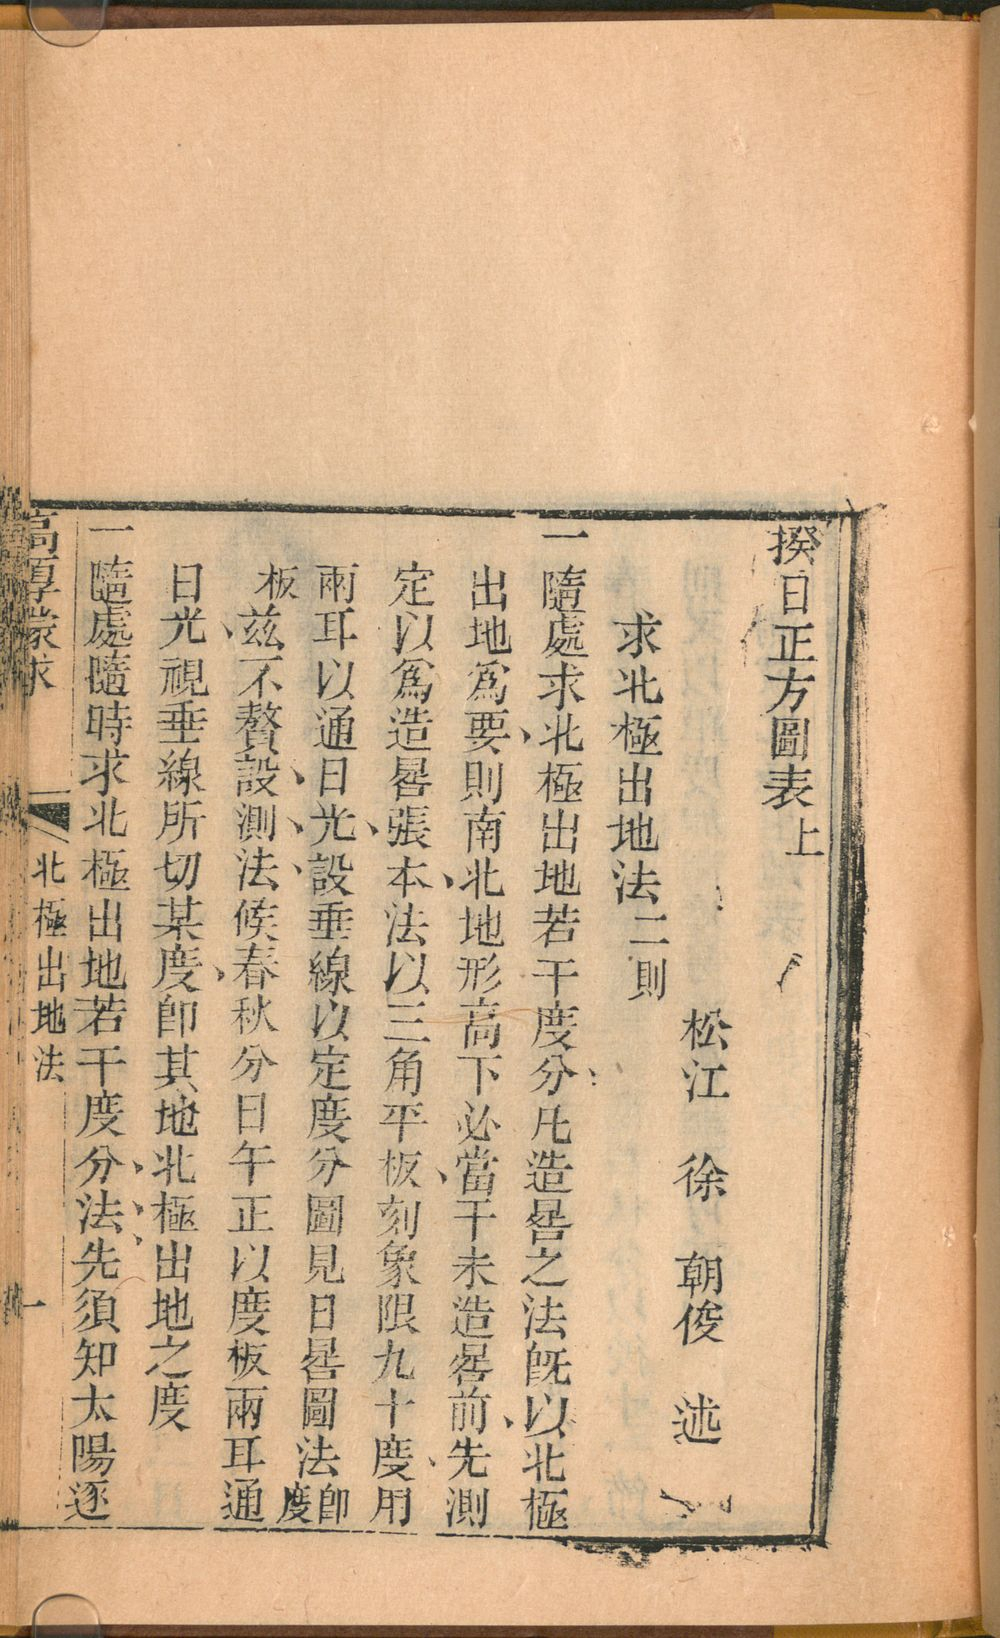 揆日正方圖表上
松江 徐 朝俊 述
求北極出地法二則
一隨處求北極出地若干度分凡造晷之法旣以北極
出地爲要則南北地形高下必當于未造晷前先測
定以爲造晷張本法以三角平板刻象限九十度用
兩耳以通日光設垂線以定度分圖見日晷圖法卽度
板茲不贅設測法候春秋分日午正以度板兩耳通
日光視垂線所切某度卽其地北極出地之度
一隨處隨時求北極出地若干度分法先須知太陽逐
高厚蒙求 北極出地法 一